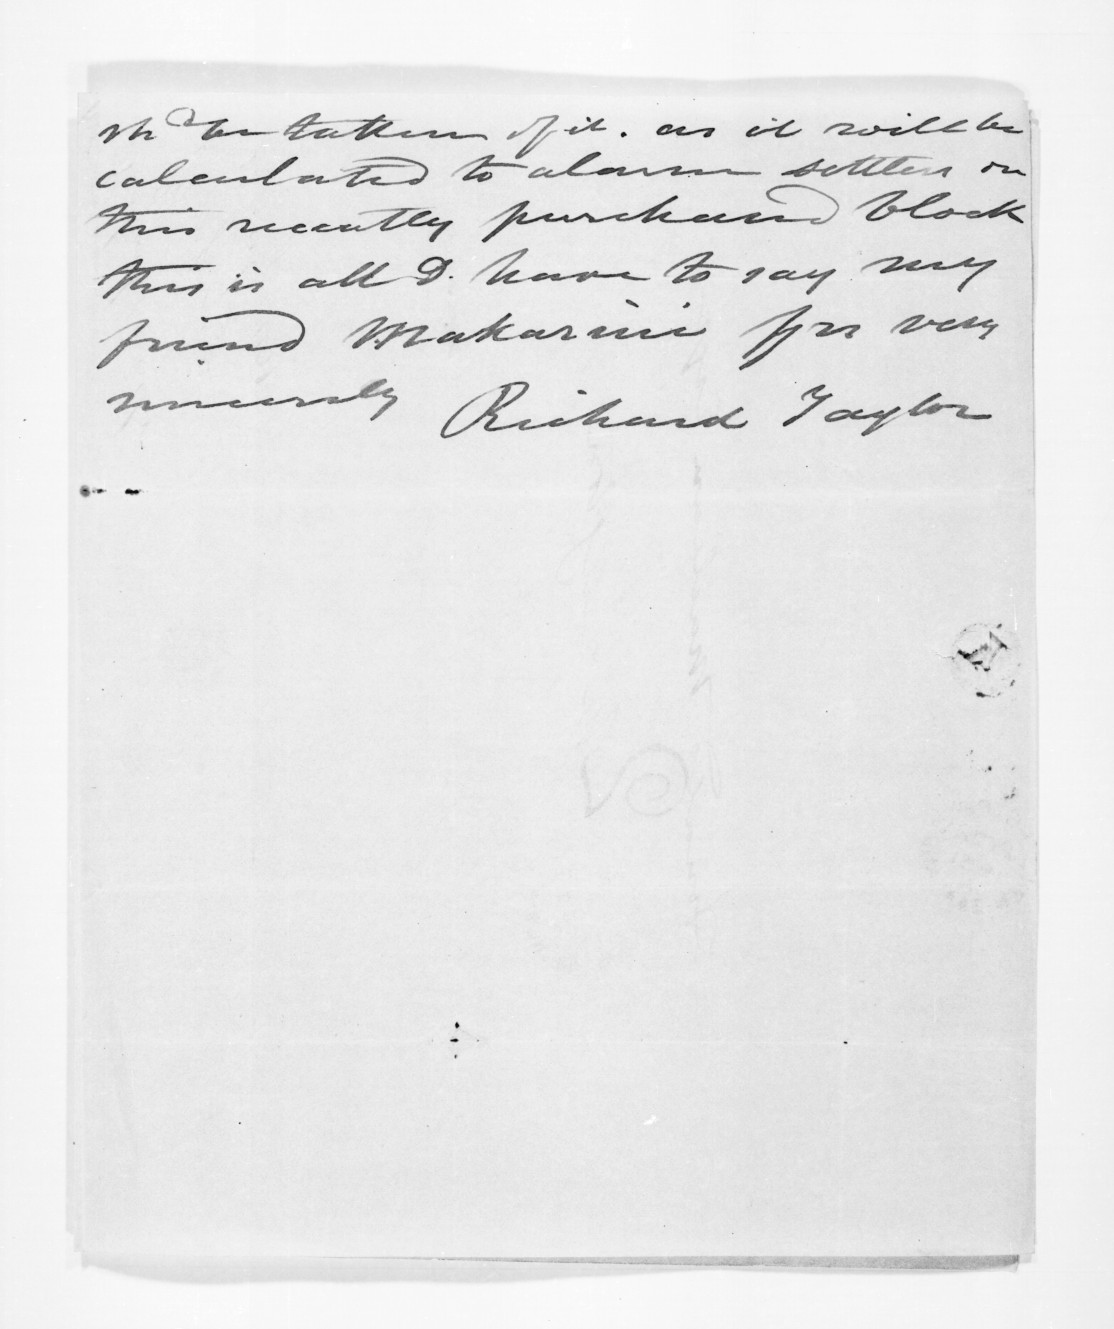 shd be taken of it. as it will be
calculated to alarm settlers on
this recently purchased block
this is all I have to say my
friend Makarini Yrs very
sincerely Richard Taylor